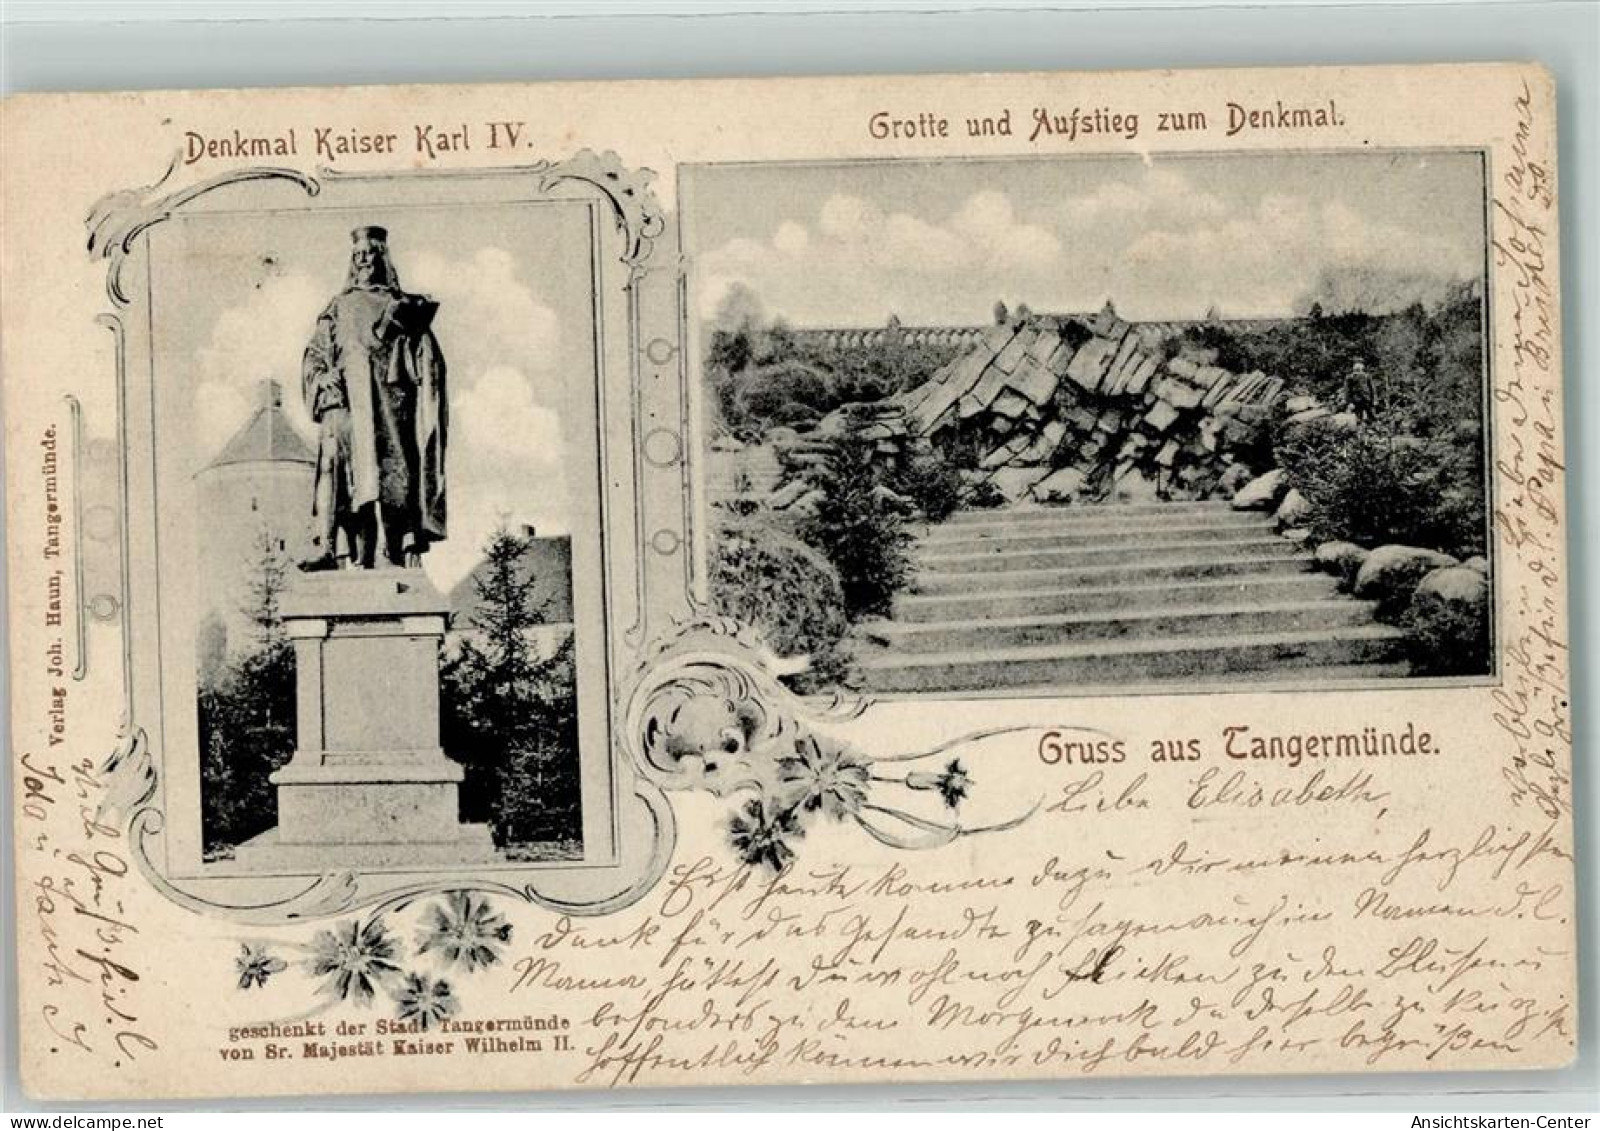 Denkmal Kaiser Karl IV.
Grotte und Aufstieg zum Denkmal.
Verlag Joh. Haun, Tangermünde.
Gruss aus Tangermünde.
geschenkt der Stadt Tangermünde
von Sr. Majestät Kaiser Wilhelm II.
Liebe Elisabeth,
Erst heute komme dazu Dir meinen herzlichsten
Dank für das Gesandte zu sagen auch im Namen d. l.
Mama, hättest Du wohl noch Flicken zu den Blusen u
besonders zu dem Morgenrock da derselbe zu kurz ist.
hoffentlich können wir Dich bald hier begrüßen
Ansichtskarten-Center